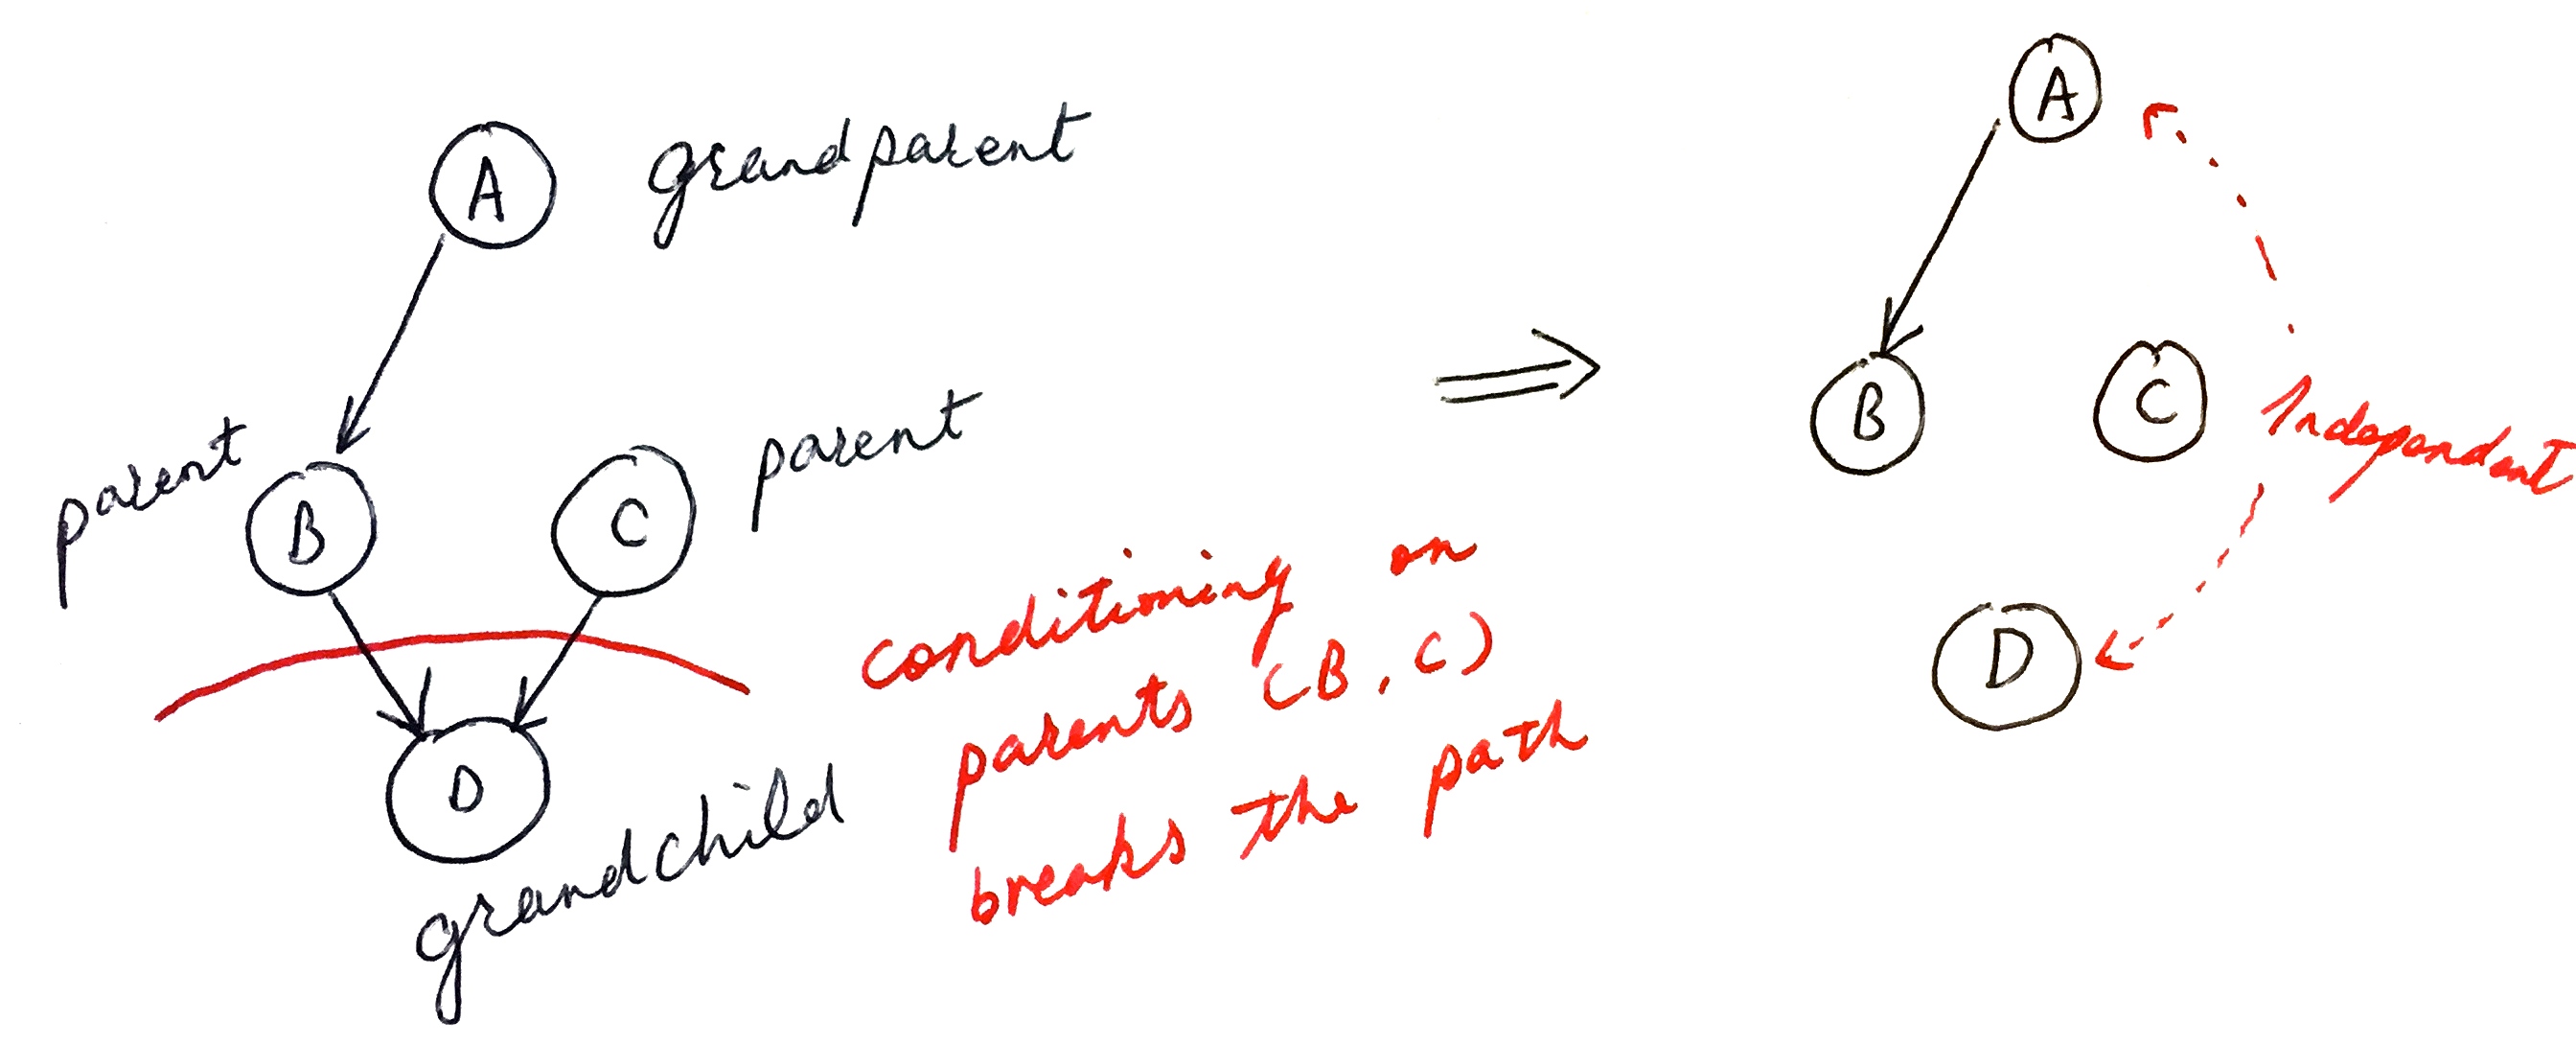 A grandparent
parent
B
C
parent
D
grandchild
conditioning on
parents (B, C)
breaks the path
A
B
C
Independent
D